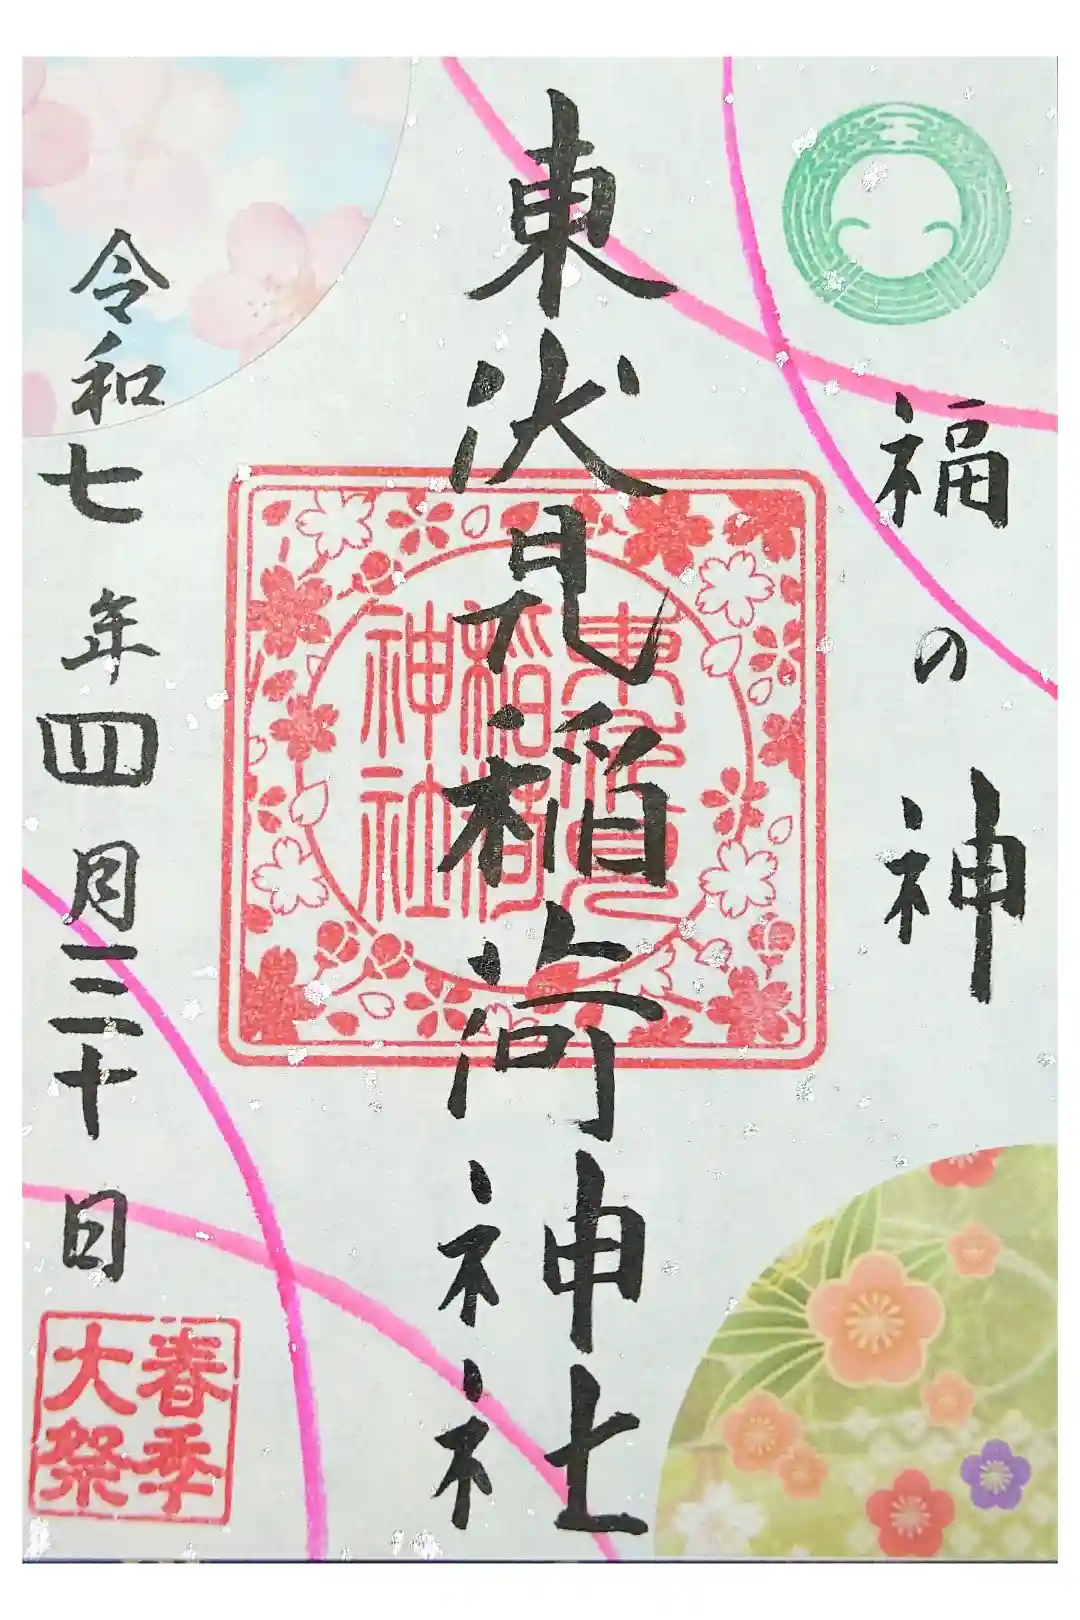 福の神
東伏見稲荷神社
東伏見
稲荷
神社
令和七年四月三十日
春季
大祭